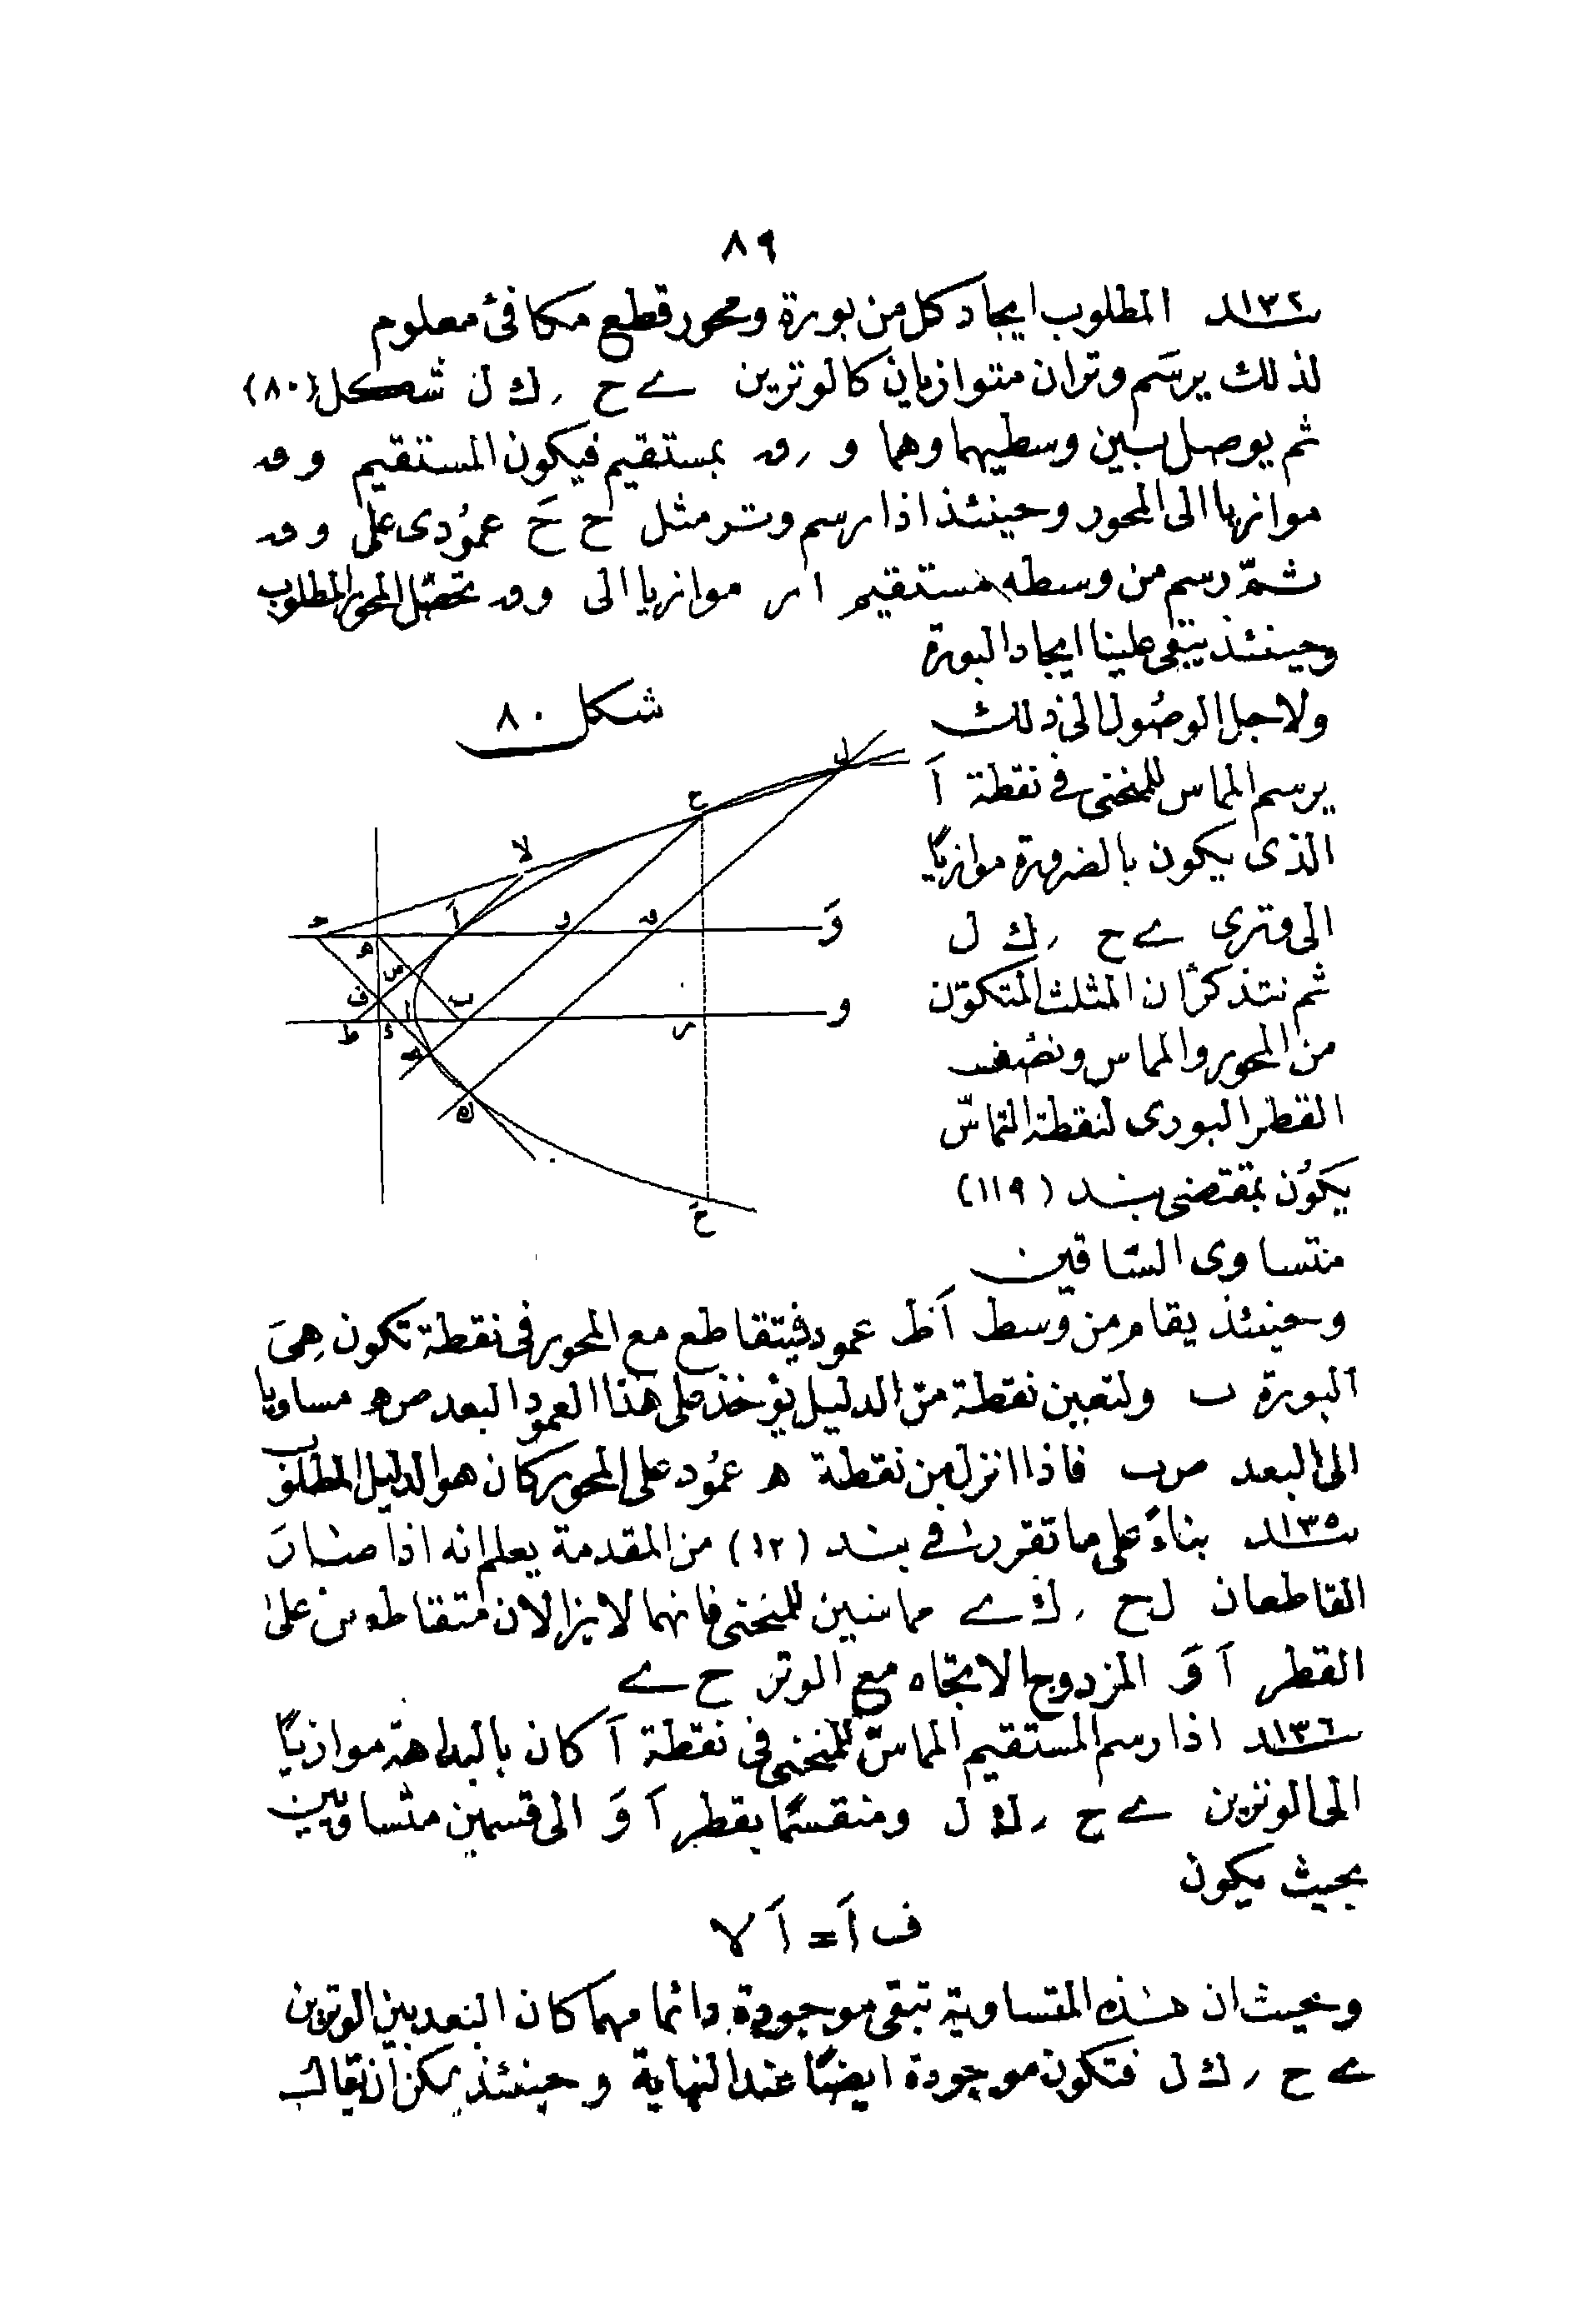 ٨٩
بند ١٣٤ المطلوب ايجاد كل من بورة ومحور قطع مكافئ معلوم
لذلك يرسم وتران متوازيان كالوترين ے ح ر ك ل شكل (٨٠)
ثم يوصل بين وسطيهما وهما و ر ق بمستقيم فيكون المستقيم و ق
موازيا الى المحور وحينئذ اذا رسم وتر مثل ح حَ عمودى على و ق
ثم رسم من وسطه مستقيم ا ر موازيا الى و ق تحصل المحور المطلوب
وحينئذ يبقى علينا ايجاد البورة
ولاجل الوصول الى ذلك
يرسم المماس للمنحنى فى نقطة اَ
الذى يكون بالضرورة موازيا
الى وترى ے ح ر ك ل
ثم نتذكر ان المثلث المتكون
من المحور والمماس ونصف
القطر البورى لنقطة التماس
يكون بمقتضى بند (١١٩)
متساوى الساقين
شكل ٨٠
ل
ح
لا
ح
اَ
و
ق
وَ
ه
س
ف
ب
ا
ط
ء
ر
و
ے
ك
حَ
وحينئذ يقام من وسط اَط عمود فيتقاطع مع المحور فى نقطة تكون هى
البورة ب ولتعين نقطة من الدليل يؤخذ على هذا العمود البعد ص ه مساويا
الى البعد ص ب فاذا انزل من نقطة ه عمود على المحور كان هو الدليل المطلوب
بند ١٣٥ بناءً على ما تقرر فى بند (١٢) من المقدمة يعلم انه اذا صار
القاطعان ل ح ر ك ے مماسين للمنحنى فانهما لا يزالان متقاطعين على
القطر اَ وَ المزدوج الاتجاه مع الوتر ح ے
بند ١٣٦ اذا رسم المستقيم المماس للمنحنى فى نقطة اَ كان بالبداهة موازيا
الى الوترين ے ح ر ك ل ومنقسما بقطر اَ وَ الى قسمين متساويين
بحيث يكون
ف اَ = اَ لا
وحيث ان هذه المتساوية تبقى موجودة دائما مهما كان البعد بين الوترين
ے ح ر ك ل فتكون موجودة ايضا عند النهاية وحينئذ يمكن ان يقال